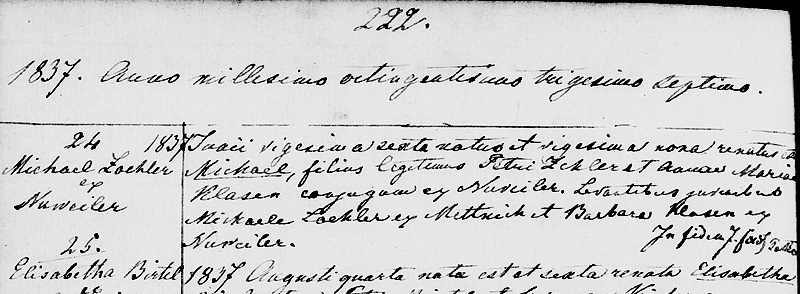 222.
1837. Anno millesimo octingentesimo trigesimo septimo.
24
Michael Zoehler
ex
Nuweiler
1837 Junii vigesima sexta natus et vigesima nona renatus est
Michael, filius legitimus Petri Zehler et Annae Mariae
Klasen conjugum ex Nuweiler. Levantibus juvenibus
Michaele Zoehler ex Mettnich et Barbara Klasen ex
Nuweiler.
In fidem J.
25.
Elisabetha Birtel
1837 Augusti quarta nata est et sexta renata Elisabetha